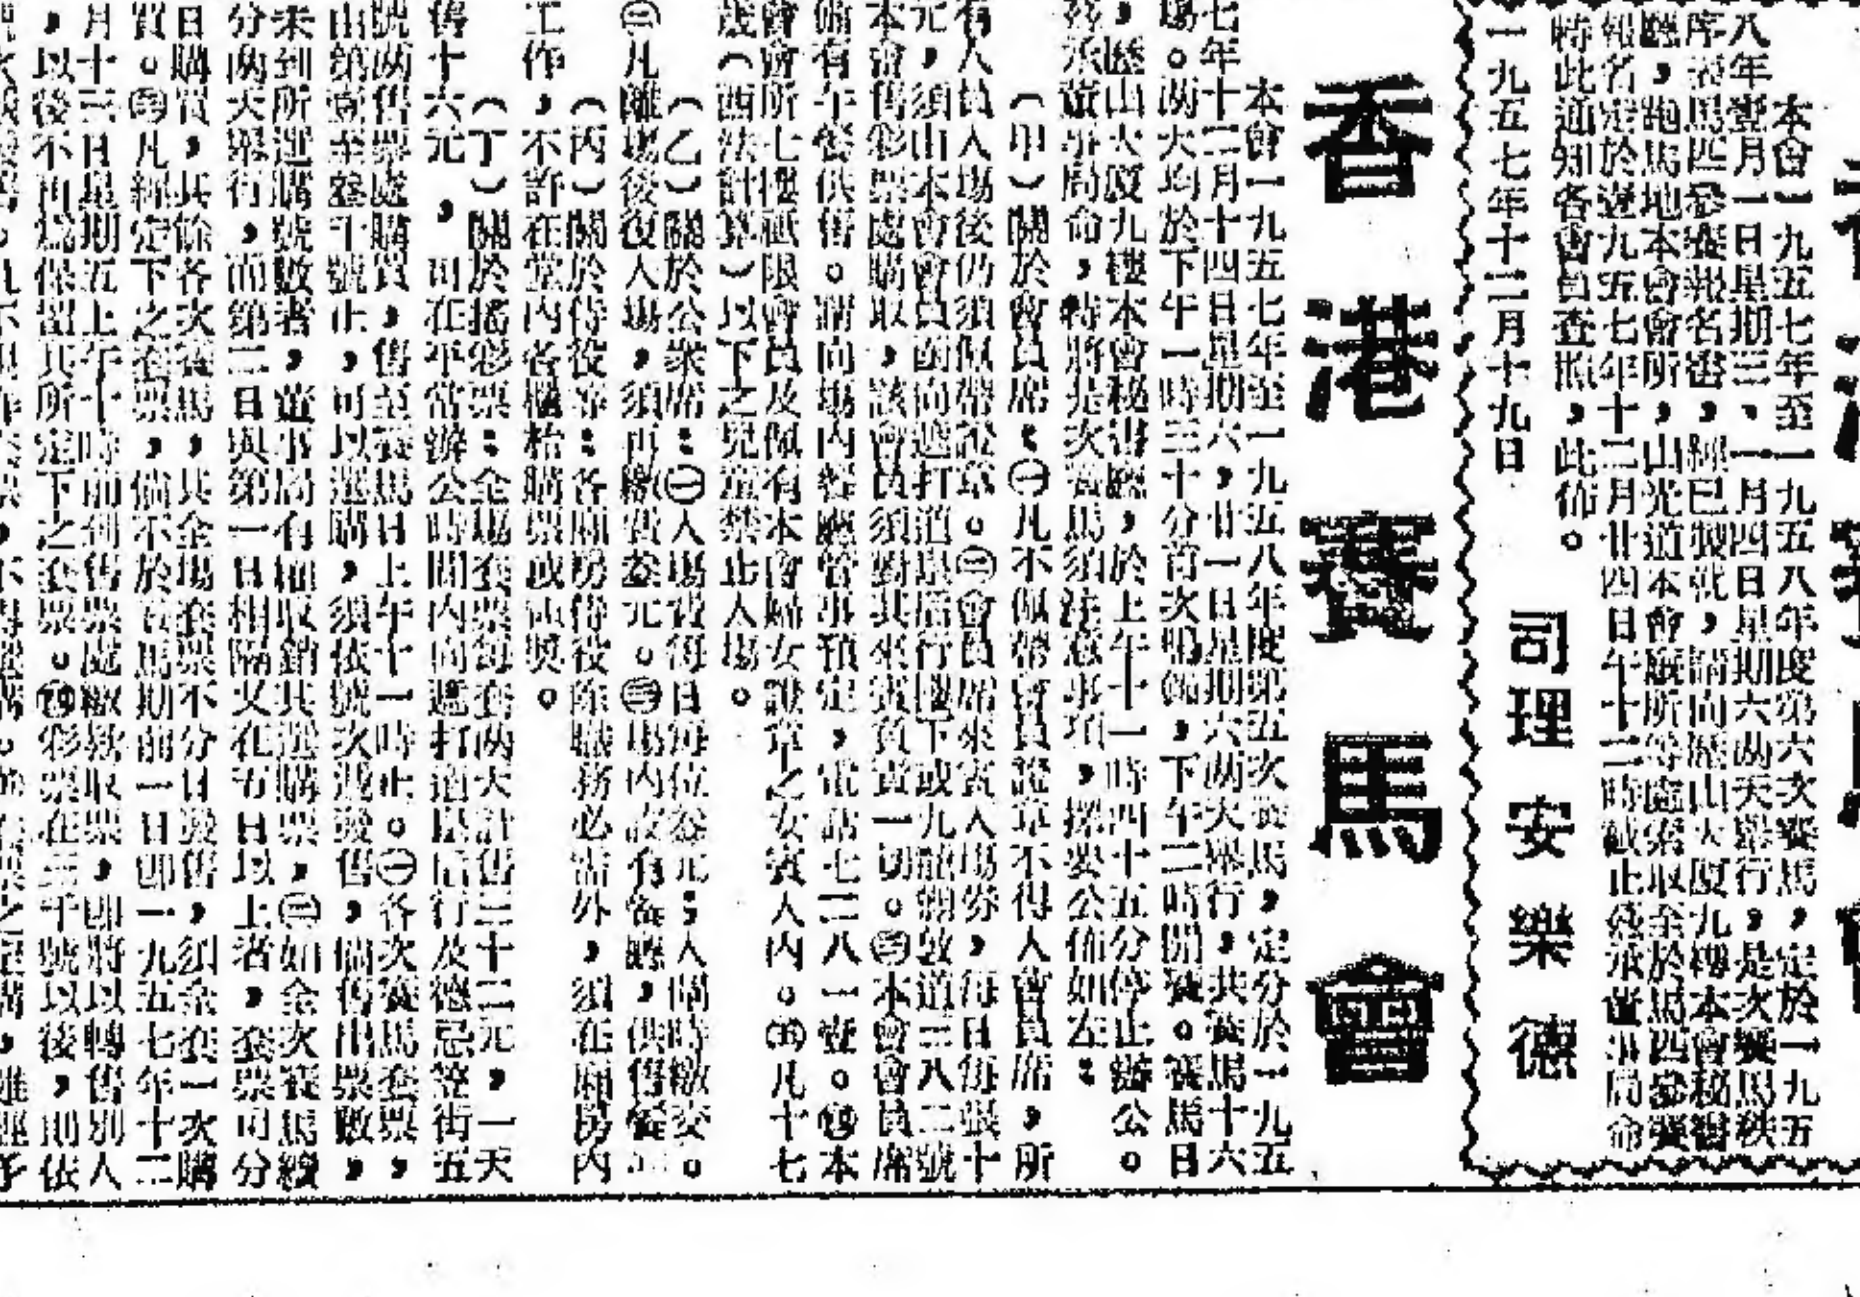 本會一九五七年至一九五八年度第六次賽馬，定於一九五
八年壹月一日星期三、一月四日星期六兩天舉行，是次賽馬秩
序表馬匹參賽報名書，經已製就，請向歷山大廈九樓本會秘書
廳，跑馬地本會所，山光道本會廐所等處索取至於馬匹參賽
報名定於壹九五七年十二月廿四日午十二時截止茲承董事局命
特此通知各會員查照，此佈。
司理安樂德
一九五七年十二月十九日
香港賽馬會
本會一九五七年至一九五八年度第五次賽馬，定分於一九五
七年十二月十四日星期六，廿一日星期六兩天舉行，共賽馬十六
場。兩天均於下午一時三十分首次鳴鐘，下午二時開賽。賽馬日
，歷山大廈九樓本會秘書廳，於上午十一時四十五分停止辦公。
茲承董事局命，特將是次賽馬須注意事項，擇要公佈如左：
（甲）關於會員席：㊀凡不佩帶會員證章不得入會員席，所
有人員入場後仍須佩帶證章。㊁會員席來賓入場券，每日每張十
元，須由本會會員函向遮打道皇后行樓下或九龍彌敦道三八二號
本會售彩票處購取，該會員須對其來賓負責一切。㊂本會會員席
備有午餐供售。請向場內經廳管事預定，電話七二八一壹。㊃本
會會所七樓祗限會員及佩有本會婦女證章之女賓入內。㊄凡十七
歲（西法計算）以下之兒童禁止入場。
（乙）關於公衆席：㊀入場費每日每位叁元；入閘時繳交。
㊁凡離場後復入場，須再繳費叁元。㊂場內設有餐廳，供售餐
（丙）關於侍役等：各廂房侍役除職務必需外，須在廂房內
工作，不許在堂內各櫃枱購票或領獎。
（丁）關於搖彩票：全場套票每套兩天計售三十二元，一天
售十六元，可在平常辦公時間內向遮打道皇后行及德忌笠街五
號兩售票處購買，售至賽馬日上午十一時止。㊀各次賽馬套票，
由第壹至叁千號止，可以選購，須依號次遞發售，倘售出票數，
未到所選購號數者，董事局有權取銷其選購票，㊁如全次賽馬續
分兩天舉行，而第二日與第一日相隔又在五日以上者，套票可分
日購買，其餘各次賽馬，其全場套票不分日發售，須全套一次購
買。㊂凡經定下之套票，倘不於賽馬期前一日卽一九五七年十二
月十三日星期五上午十時前到售票處繳款取票，卽將以轉售別人
，以後不再爲保留其所定下之套票。㊃彩票在三千號以後，則依